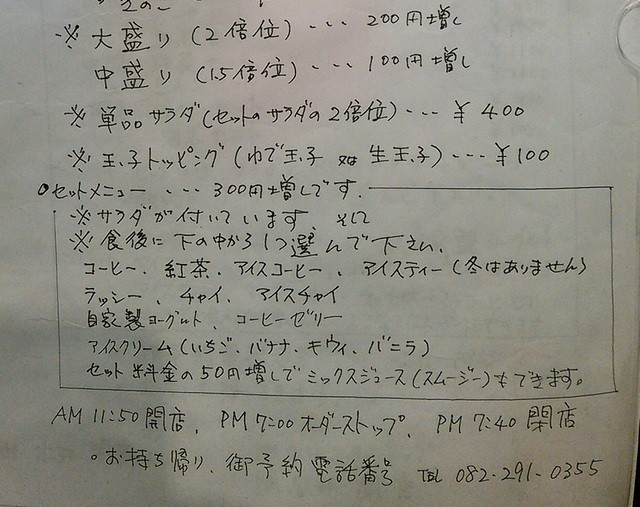 きのこ
※ 大盛り (2倍位) … 200円増し
中盛り (1.5倍位) … 100円増し
※ 単品サラダ(セットのサラダの2倍位) … ¥400
※ 玉子トッピング (ゆで玉子 又は 生玉子) … ¥100
○セットメニュー … 300円増しです.
※サラダが付いています そして
※食後に下の中から1つ選んで下さい.
コーヒー、紅茶、アイスコーヒー、アイスティー (冬はありません)
ラッシー、チャイ、アイスチャイ
自家製ヨーグルト、コーヒーゼリー
アイスクリーム (いちご、バナナ、キウィ、バニラ)
セット料金の50円増しでミックスジュース(スムージー)もできます。
AM 11:50 開店、PM 7:00 オーダーストップ、PM 7:40 閉店
。お持ち帰り、御予約 電話番号 TEL 082-291-0355